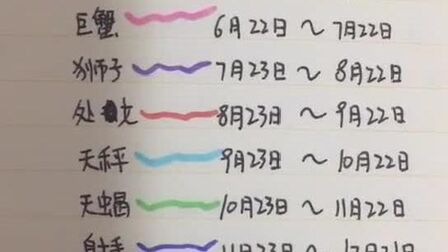 巨蟹 6月22日 ~ 7月22日
狮子 7月23日 ~ 8月22日
处女 8月23日 ~ 9月22日
天秤 9月23日 ~ 10月22日
天蝎 10月23日 ~ 11月22日
射手 11月23日 ~ 12月21日